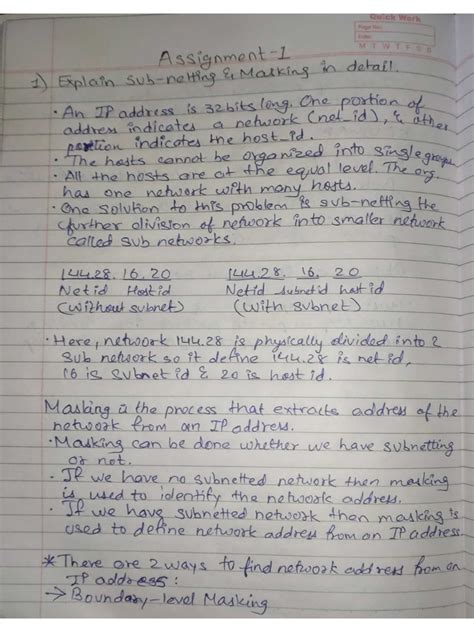 Quick Work
Page No:
Date:
M T W T F S S
Assignment-1
1) Explain Sub-netting & Masking in detail.
· An IP address is 32 bits long. One portion of
address indicates a network (net_id), & other
portion indicates the host_id.
· The hosts cannot be organized into single group.
· All the hosts are at the equal level. The org.
has one network with many hosts.
· One solution to this problem is sub-netting the
further division of network into smaller network
called sub networks.
144.28.16.20 144.28. 16. 20
Netid Hostid Netid Subnetid hostid
(Without subnet) (With subnet)
· Here, network 144.28 is physically divided into 2
sub network so it define 144.28 is net id,
16 is Subnet id & 20 is host id.
Masking is the process that extracts address of the
network from an IP address.
· Masking can be done whether we have subnetting
or not.
· If we have no subnetted network then masking
is used to identify the network address.
· If we have subnetted network then masking is
used to define network address from an IP address.
* There are 2 ways to find network address from an
IP address:
→ Boundary-level Masking